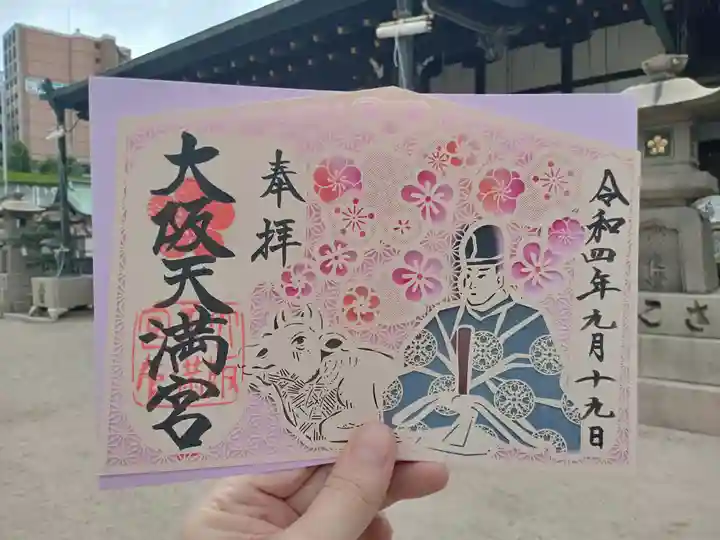 令和四年九月十九日
奉拝
大阪天満宮
さ
こ